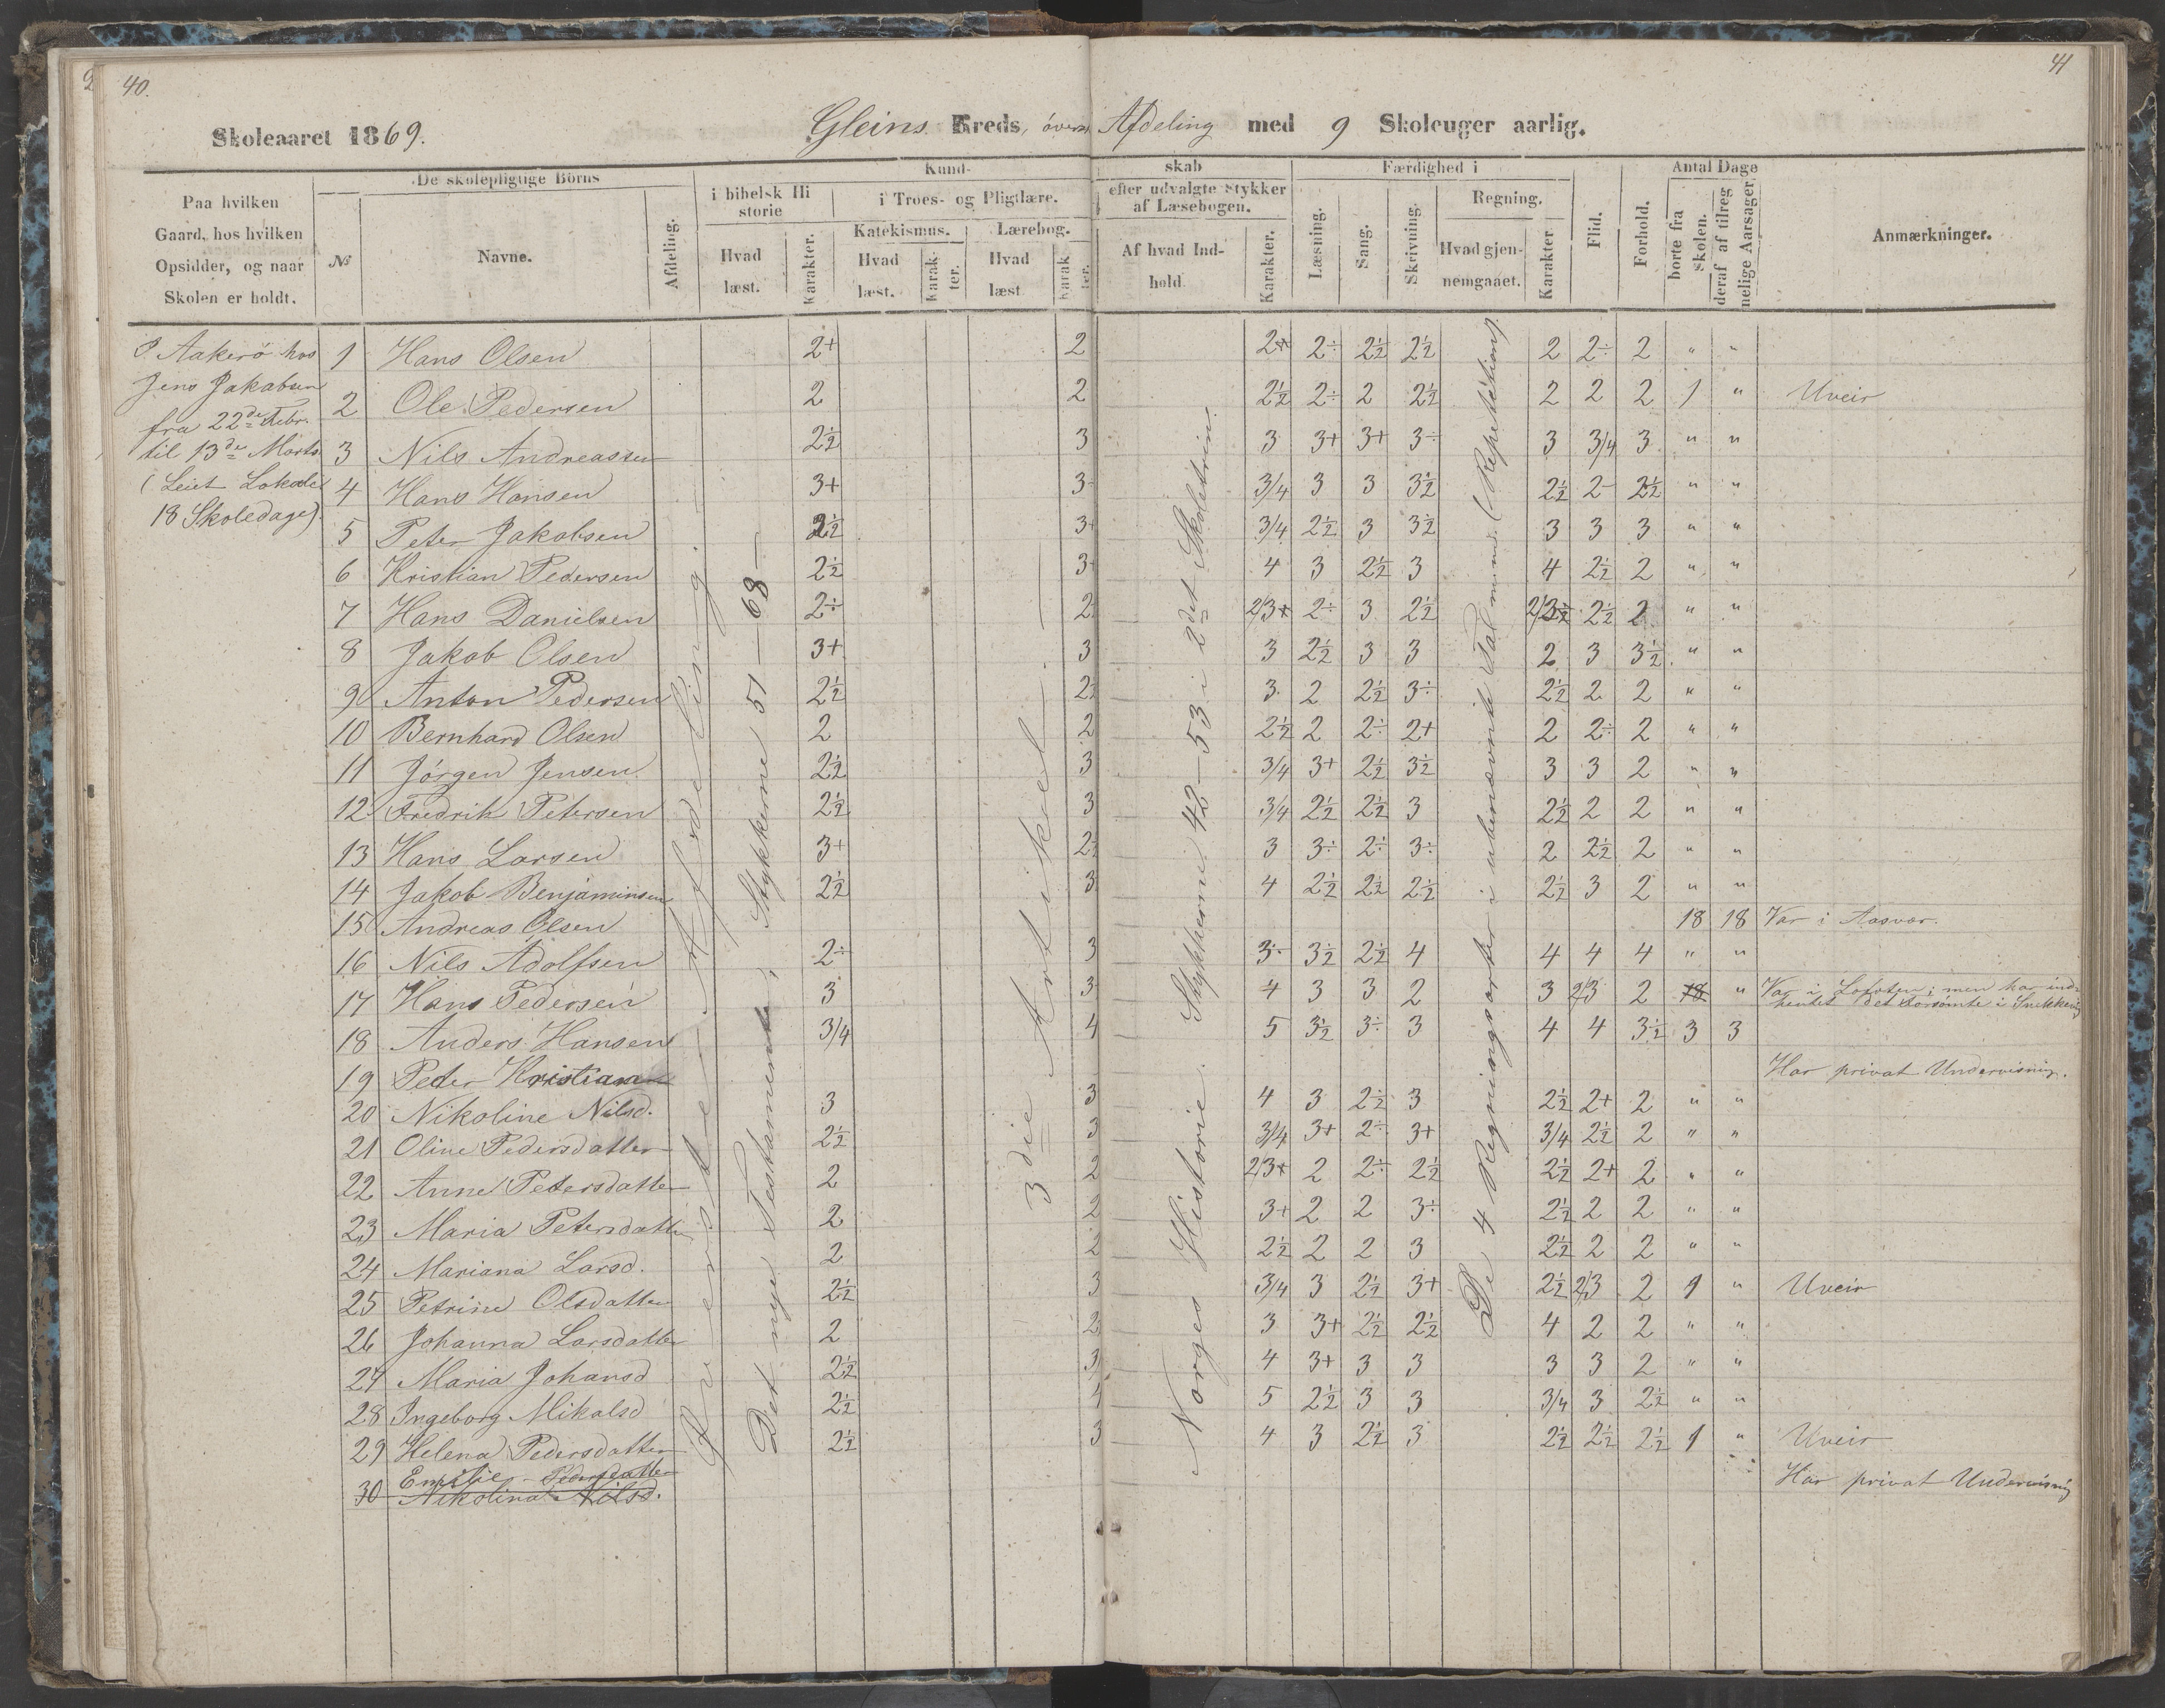 40.
41
Skoleaaret 1869.
Gleins Kreds, øverste Afdeling med 9 Skoleuger aarlig.
Paa hvilken Gaard, hos hvilken Opsidder, og naar Skolen er holdt.
De skolepligtige Børns
№
Navne.
Afdeling.
Kundskab
i bibelsk Historie
Hvad læst.
Karakter.
i Troes- og Pligtlære.
Katekismus.
Hvad læst.
Karakter.
Lærebog.
Hvad læst
Karakter.
efter udvalgte Stykker af Læsebogen.
Af hvad Indhold.
Karakter.
Færdighed i
Læsning.
Sang.
Skrivning.
Regning.
Hvad gjennemgaaet.
Karakter
Flid.
Forhold.
Antal Dage
borte fra skolen.
deraf af tilregnelige Aarsager
Anmærkninger.
P Aakerø hos
Jens Jakobsen
fra 22de Febr.
til 13de Marts
(Leiet Lokale
18 Skoledage).
Øverste Afdeling.
Det nye Testamente, Stykkerne 51 — 68 —
3die Artikel
Norges Historie. Stykkerne 42 — 53 i 2det Skoletrin.
De 4 Regningsarter i ubenævnte Tal (Repetition)
1 Hans Olsen 2+ 2 2+ 2÷ 2½ 2½ 2 2÷ 2 " "
2 Ole Pedersen 2 2 2½ 2÷ 2 2½ 2 2 2 1 " Uveir
3 Nils Andreassen 2½ 3 3 3+ 3+ 3÷ 3 3/4 3 " "
4 Hans Hansen 3+ 3 3/4 3 3 3½ 2½ 2 2½ " "
5 Peter Jakobsen 2½ 3+ 3/4 2½ 3 3½ 3 3 3 " "
6 Kristian Pedersen 2½ 3+ 4 3 2½ 3 4 2½ 2 " "
7 Hans Danielsen 2÷ 2 2/3+ 2÷ 3 2½ 2½ 2 " "
8 Jakob Olsen 3+ 3 3 2½ 3 3 2 3 3½ " "
9 Anton Pedersen 2½ 2½ 3 2 2½ 3÷ 2½ 2 2 " "
10 Bernhard Olsen 2 2 2½ 2 2÷ 2+ 2 2÷ 2 " "
11 Jørgen Jensen 2½ 3 3/4 3+ 2½ 3½ 3 3 2 " "
12 Fredrik Petersen 2½ 3 3/4 2½ 2½ 3 2½ 2 2 " "
13 Hans Larsen 3+ 2½ 3 3÷ 2÷ 3÷ 2 2½ 2 " "
14 Jakob Benjaminsen 2½ 3 4 2½ 2½ 2½ 2½ 3 2 " "
15 Andreas Olsen 18 18 Var i Aasvær.
16 Nils Adolfsen 2÷ 3 3÷ 3½ 2½ 4 4 4 4 " "
17 Hans Pedersen 3 3 4 3 3 2 3 2/3 2 18 " Var i Lofoten; men har ind-
hentet det forsømte i Snekkevig
18 Anders Hansen 3/4 4 5 3½ 3÷ 3 4 4 3½ 3 3
19 Peder Kristiansen Har privat Undervisning.
20 Nikoline Nilsd. 3 3 4 3 2½ 3 2½ 2+ 2 " "
21 Oline Pedersdatter 2½ 3 3/4 3+ 2÷ 3+ 3/4 2½ 2 " "
22 Anne Petersdatter 2 2 2/3+ 2 2÷ 2½ 2½ 2+ 2 " "
23 Maria Petersdatter 2 2 3+ 2 2 3÷ 2½ 2 2 " "
24 Mariana Larsd. 2 2 2½ 2 2 3 2½ 2 2 " "
25 Petrine Olsdatter 2½ 3 3/4 3 2½ 3+ 2½ 2/3 2 1 " Uveir
26 Johanna Larsdatter 2 2 3 3+ 2½ 2½ 4 2 2 " "
27 Maria Johansd 2½ 3 4 3+ 3 3 3 3 2 " "
28 Ingeborg Mikalsd 2½ 4 5 2½ 3 3 3/4 3 2½ " "
29 Helena Pedersdatter 2½ 3 4 3 2½ 3 2½ 2½ 2½ 1 " Uveir
Emilie Pedersdatter Har privat Undervisning
30 Nikolina Nilsd.